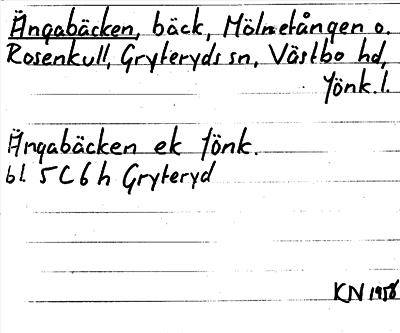 Ängabäcken, bäck, Mölnetången o.
Rosenkull, Gryteryds sn, Västbo hd,
Jönk. l.
Ängabäcken ek Jönk.
bl. 5C6h Gryteryd
KN 1958